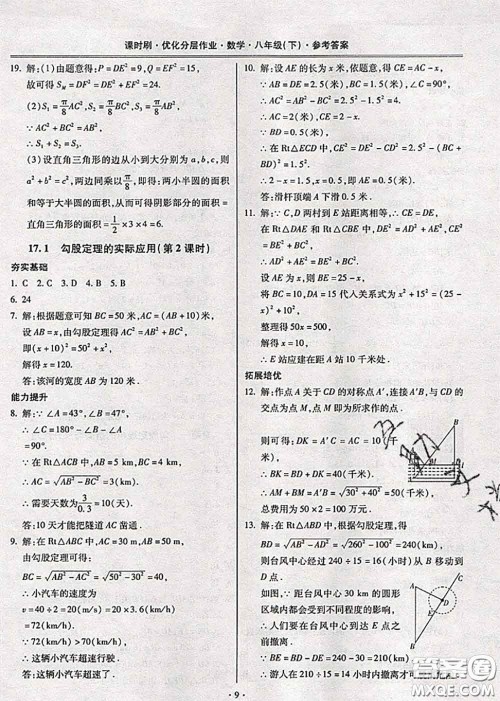 课时刷·优化分层作业·数学·八年级(下)·参考答案
19. 解:(1)由题意得:P=DE²=9,Q=EF²=15.
故可得 S_M=DF²=DE²+EF²=24.
(2)S₁=π/8 AC²,S₂=π/8 BC²,S₃=π/8 AB².
∵ AC²+BC²=AB²,
∴ S₁+S₂=S₃.
(3)设直角三角形的边从小到大分别为 a,b,c,则
a²+b²=c²,两边同乘以π/8,即得:两小半圆的面积
等于大半圆的面积,从而可得阴影部分的面积=
直角三角形的面积=1/2×3×4=6.
17.1 勾股定理的实际应用(第2课时)
夯实基础
1. C 2. C 3. B 4. B 5. D
6. 24
7. 解:根据题意可知 BC=50米,AC=AB+10米,
设 AB=x,由勾股定理得 AC²=AB²+BC²,
即(x+10)²=50²+x²,
解得 x=120.
答:该河的宽度 AB 为120米.
能力提升
8. 解:∵ ∠A=43°,∠B=47°,
∴ ∠C=180°-∠A-∠B=90°.
∴ 在Rt△ACB中,AB=5 km,BC=4 km,
∴ AC=√(AB²-BC²)=3(km).
∴ 需要天数为3/0.3=10(天).
答:10天才能把隧道AC凿通.
9. 解:在Rt△ABC中,AC=30 m,AB=50 m,
由勾股定理可得:
BC=√(AB²-AC²)=√(50²-30²)=40(m).
∴ 小汽车的速度为
v=40÷2=20(m/s)=72(km/h).
∵ 72(km/h)>70(km/h),
∴ 这辆小汽车超速行驶.
答:这辆小汽车超速了.
10. 解:设AE的长为x米,依题意得CE=AC-x.
∵ AB=DE=2.5(米),BC=1.5(米),∠C=90°,
∴ AC=√(AB²-BC²)=√(2.5²-1.5²)=2.
∵ BD=0.5(米),
∴ 在Rt△ECD中,CE=√(DE²-CD²)=1.5(米).
∴ 2-x=1.5,x=0.5.即AE=0.5(米).
答:滑杆顶端A下滑0.5米.
11. 解:∵ C,D两村到E站距离相等,∴ CE=DE,
在Rt△DAE和Rt△CBE中,DE²=AD²+AE²,
CE²=BE²+BC²,
∴ AD²+AE²=BE²+BC².
将BC=10,DA=15代入关系式为x²+15²=(25-x)²+10²,
整理得50x=500,
解得x=10.
∴ E站应建在距A站10千米处.
拓展培优
12. 解:作点A关于CD的对称点A′,连接A′B,与CD的
交点为点M,点M即为所求作的点.
则可得:DK=A′C=AC=10(千米),
∴ BK=BD+DK=40(千米).
∴ AM+BM=A′B=√(30²+40²)=50(千米).
总费用为50×2=100万元.
13. 解:在Rt△ABD中,根据勾股定理,得
BD=√(AB²-AD²)=√(260²-100²)=240(km),
则台风中心经过240÷15=16(小时)从B移动到
D点.
如图,∵ 距台风中心30 km的圆形
区域内都会受到不同程度的影响,
∴ 人们要在台风中心到达E点之前
撤离.
∵ BE=BD-DE=240-30=210(km),
∴ 游人在210÷15=14小时内撤离才可
· 9 ·
答案圈
MXQE.COM